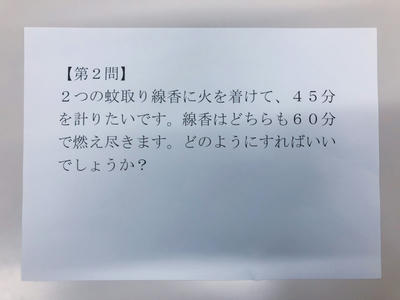 【第２問】
２つの蚊取り線香に火を着けて、４５分
を計りたいです。線香はどちらも６０分
で燃え尽きます。どのようにすればいい
でしょうか？